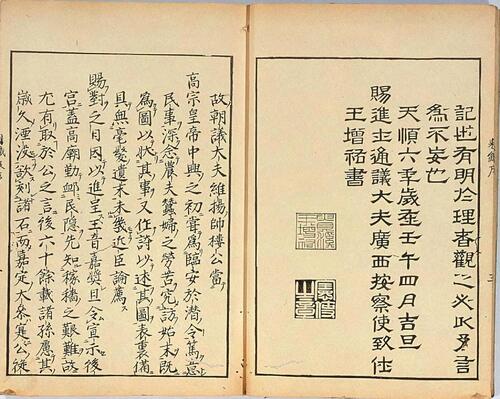 記也有明於理者觀之必此予言
為不妄也
天順六年歲在壬午四月吉旦
賜進士通議大夫廣西按察使致仕
王增祐書
故朝議大夫維揚帥樓公當
高宗皇帝中興之初嘗為臨安於潛令篤意
民事深念農夫蠶婦之勞苦究訪始末既
為圖以狀其事又作詩以述其圖表裏備
具無毫髮遺未幾近臣論薦
賜對之日因以進呈玉音嘉奨旦令宣示後
宮蓋高廟勤䘏民隱先知稼穡之艱難故
尤有取於公之言後六十餘載諸孫慮其
歲久湮沒欲刻諸石而嘉定大參寞公從